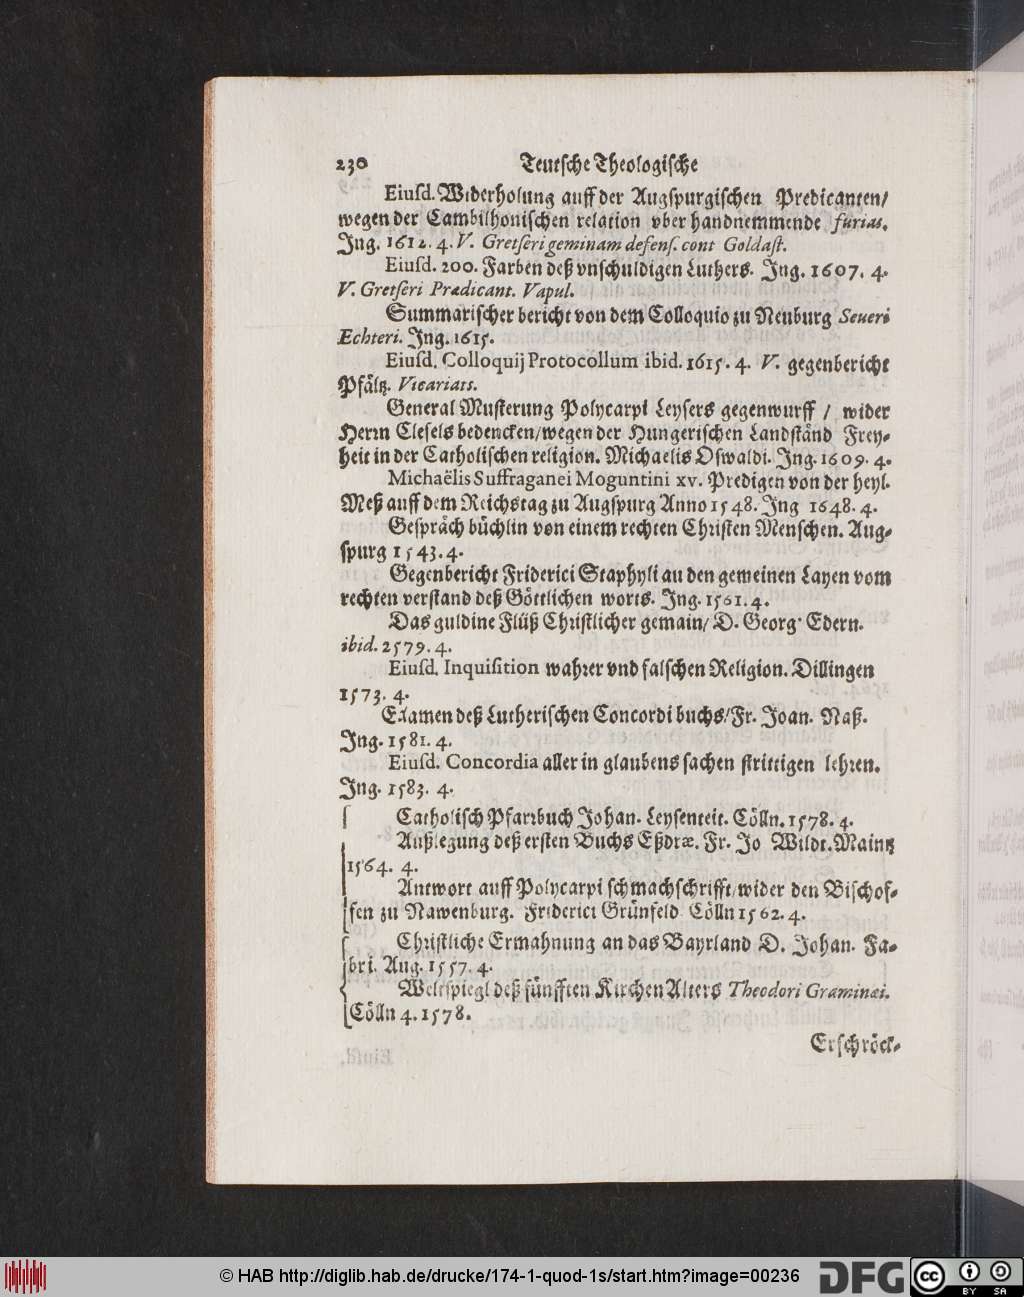 230 Teutsche Theologische
Eiusd. Widerholung auff der Augspurgischen Predicanten/
wegen der Cambilhonischen relation vber handnemmende furias.
Ing. 1612. 4. V. Gretseri geminam defens. cont Goldast.
Eiusd. 200. Farben deß vnschuldigen Luthers. Ing. 1607. 4.
V. Gretseri Prædicant. Vapul.
Summarischer bericht von dem Colloquio zu Neuburg Seueri
Echteri. Ing. 1615.
Eiusd. Colloquij Protocollum ibid. 1615. 4. V. gegenbericht
Pfältz. Vicariats.
General Musterung Polycarpi Leysers gegenwurff / wider
Herrn Clesels bedencken/wegen der Hungerischen Landständ Frey-
heit in der Catholischen religion. Michaelis Oswaldi. Ing. 1609. 4.
Michaëlis Suffraganei Moguntini xv. Predigen von der heyl.
Meß auff dem Reichstag zu Augspurg Anno 1548. Ing 1648. 4.
Gespräch büchlin von einem rechten Christen Menschen. Aug-
spurg 1543. 4.
Gegenbericht Friderici Staphyli an den gemeinen Layen vom
rechten verstand deß Göttlichen worts. Ing. 1561. 4.
Das guldine Flüß Christlicher gemain/ D. Georg Edern.
ibid. 2579. 4.
Eiusd. Inquisition wahrer vnd falschen Religion. Dillingen
1573. 4.
Examen deß Lutherischen Concordi buchs/Fr. Joan. Naß.
Ing. 1581. 4.
Eiusd. Concordia aller in glaubens sachen strittigen lehren.
Ing. 1583. 4.
Catholisch Pfarrbuch Johan. Leysenteit. Cölln. 1578. 4.
Außlegung deß ersten Buchs Eßdræ. Fr. Jo Wildt. Maintz
1564. 4.
Antwort auff Polycarpi schmachschrifft/wider den Bischof-
fen zu Nawenburg. Friderici Grünfeld Cölln 1562. 4.
Christliche Ermahnung an das Bayrland D. Johan. Fa-
bri. Aug. 1557. 4.
Weltspiegl deß fünfften Kirchen Alters Theodori Graminæi.
Cölln 4. 1578.
Erschröck-
© HAB http://diglib.hab.de/drucke/174-1-quod-1s/start.htm?image=00236 DFG CC BY SA